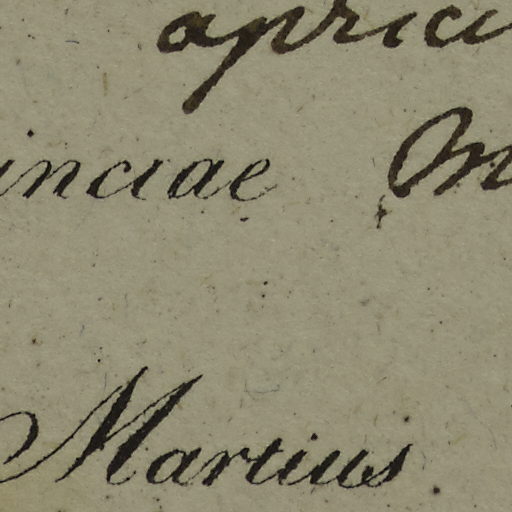 aprici
inciae M
Martius.